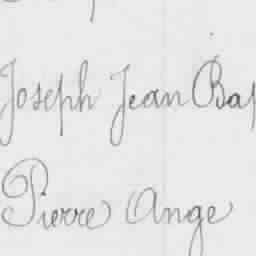 Joseph Jean Bap
Pierre Ange